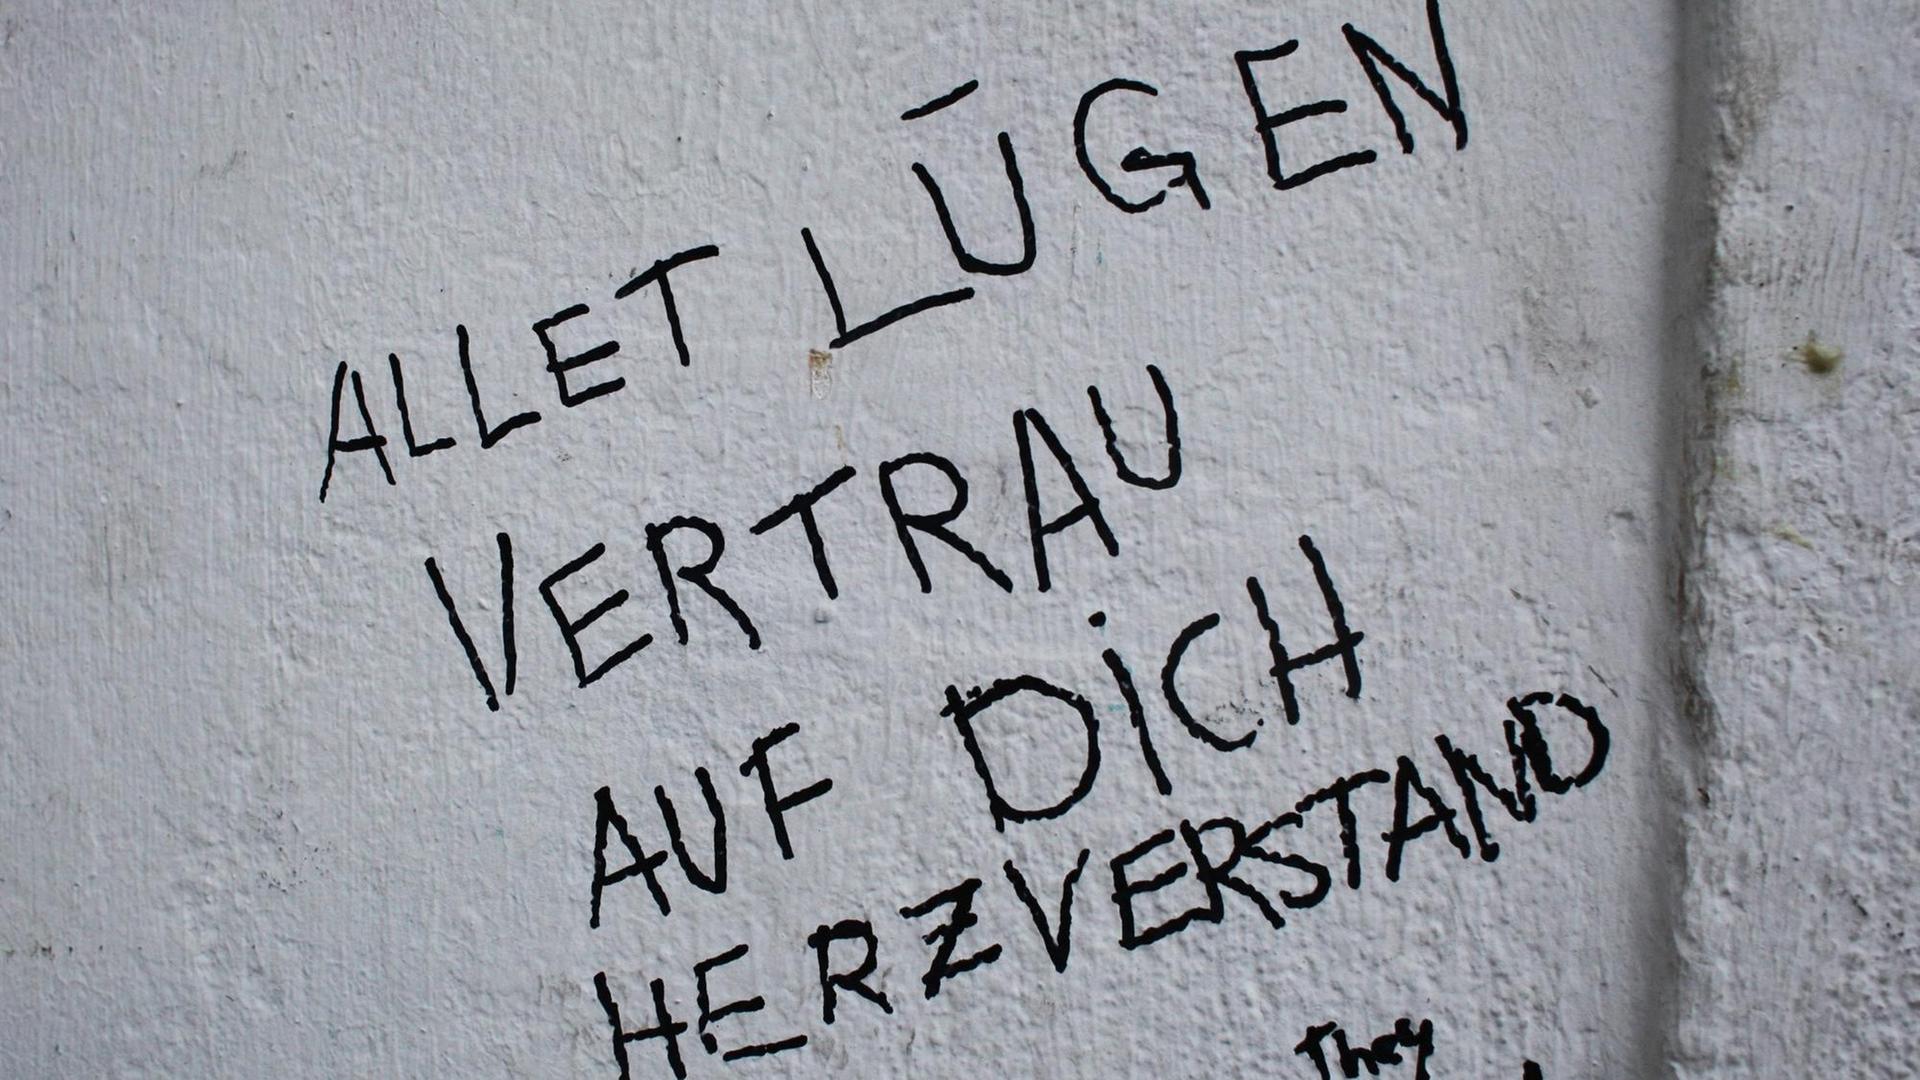 ALLET LŪGEN
VERTRAU
AUF DiCH
HERZVERSTAND
They